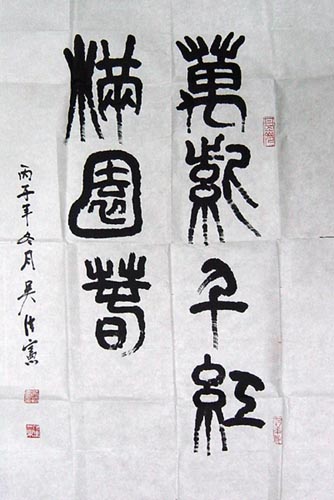 萬紫千紅
滿園春
丙子年冬月吳